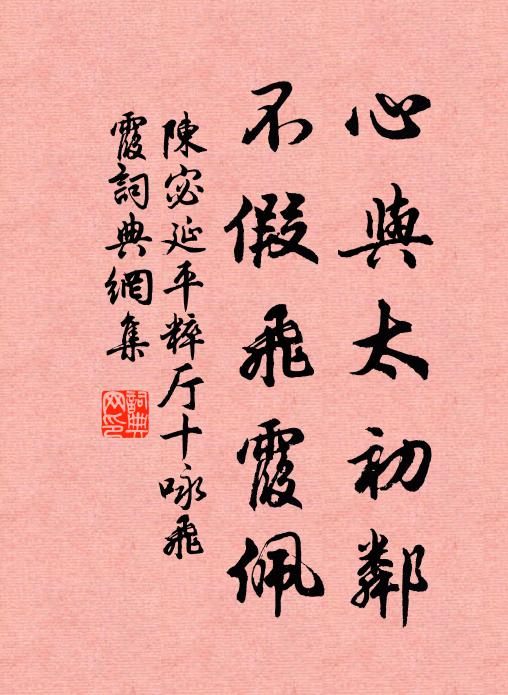 心與太初鄰
不假飛霞佩
陳宓延平粹厅十咏飛
霞詞典網集
詞典
网印